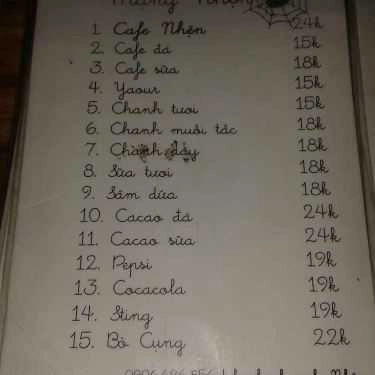 1. Cafe Nhện 24k
2. Cafe đá 15k
3. Cafe sữa 18k
4. Yaour 15k
5. Chanh tươi 15k
6. Chanh muối tắc 18k
7. Chanh dây 18k
8. Sữa tươi 18k
9. Sâm dứa 18k
10. Cacao đá 24k
11. Cacao sữa 24k
12. Pepsi 19k
13. Cocacola 19k
14. Sting 19k
15. Bò Cụng 22k